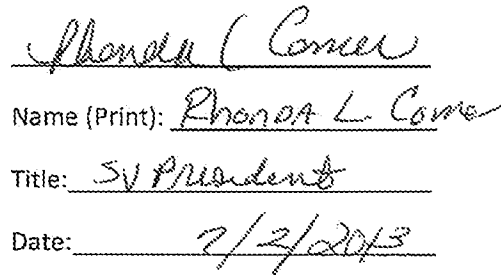 Rhonda L Comer
Name (Print): Rhonda L Come
Title: SV President
Date: 7/2/2013